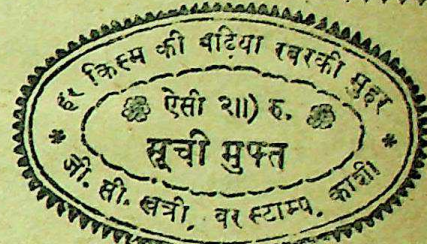 हर किस्म की बढ़िया रबरकी मुहर
ऐसी २॥) रु.
सूची मुफ्त
जी. सी. खत्री, वर स्टाम्प, काशी